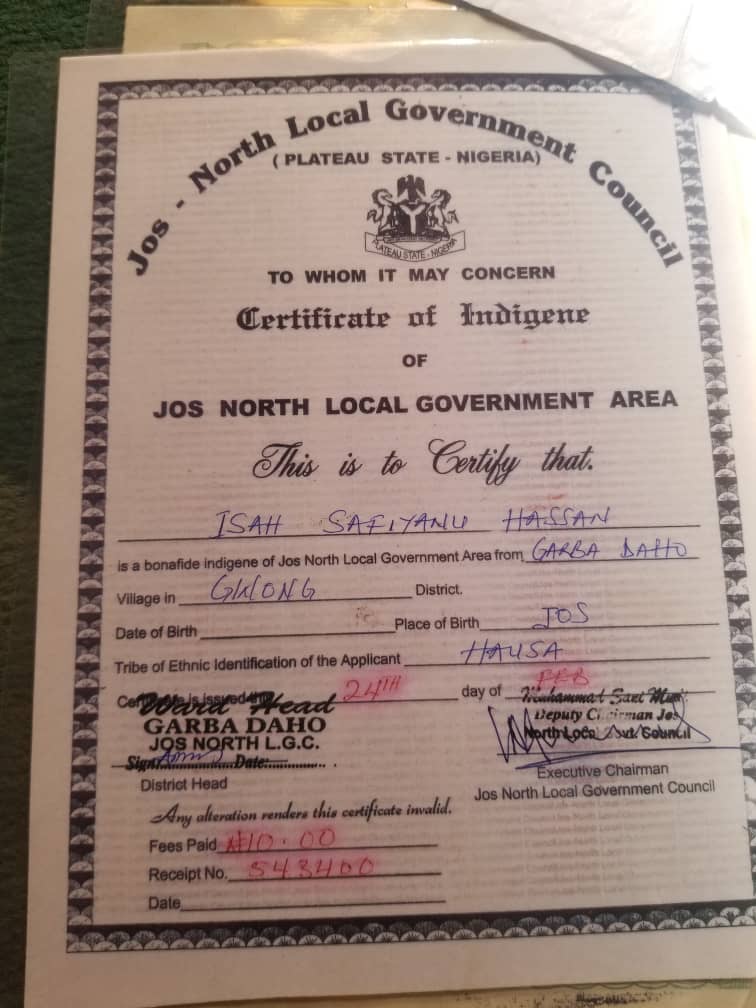 Jos - North Local Government Council
( PLATEAU STATE - NIGERIA)
PLATEAU STATE - NIGERIA
TO WHOM IT MAY CONCERN
Certificate of Indigene
OF
JOS NORTH LOCAL GOVERNMENT AREA
This is to Certify that.
ISAH SAFIYANU HASSAN
is a bonafide indigene of Jos North Local Government Area from GARBA DAHO
Village in GWONG District.
Date of Birth Place of Birth JOS
Tribe of Ethnic Identification of the Applicant HAUSA
is issued 24TH day of FEB
Ward Head Muhammad Sani
GARBA DAHO Deputy Chairman Jos
JOS NORTH L.G.C. North Council
Sign Date:
District Head Executive Chairman
Jos North Local Government Council
Any alteration renders this certificate invalid.
Fees Paid ₦10.00
Receipt No. 543400
Date